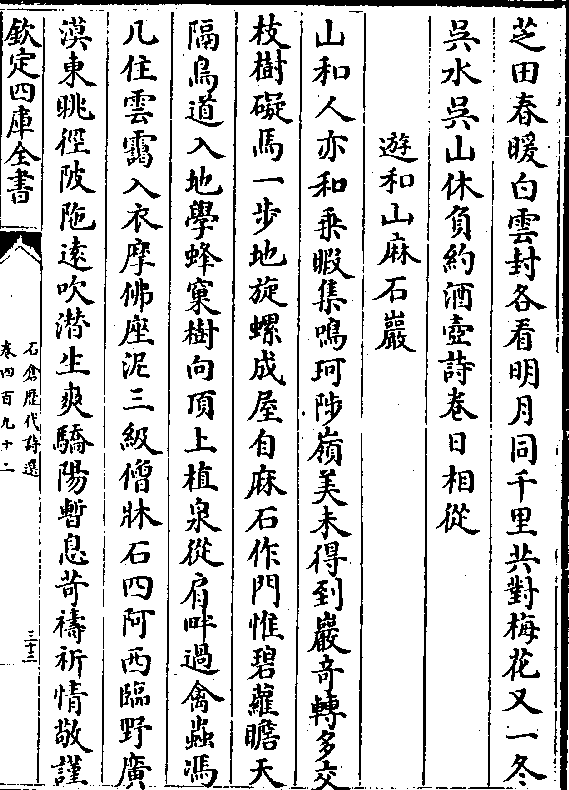 芝田春暖白雲封各看明月同千里共對梅花又一冬
吳水吳山休負約酒壺詩卷日相從
遊和山麻石巖
山和人亦和乗暇集鳴珂陟嶺美未得到巖竒轉多交
枝樹礙馬一步地旋螺成屋自麻石作門惟碧蘿瞻天
隔鳥道入地學蜂窠樹向頂上植泉從肩畔過禽蟲馮
几住雲靄入衣摩佛座泥三級僧牀石四阿西臨野廣
漠東眺徑陂陁遠吹潜生爽驕陽暫息苛禱祈情敬謹
欽定四庫全書
石倉歴代詩選
卷四百九十二
三十三